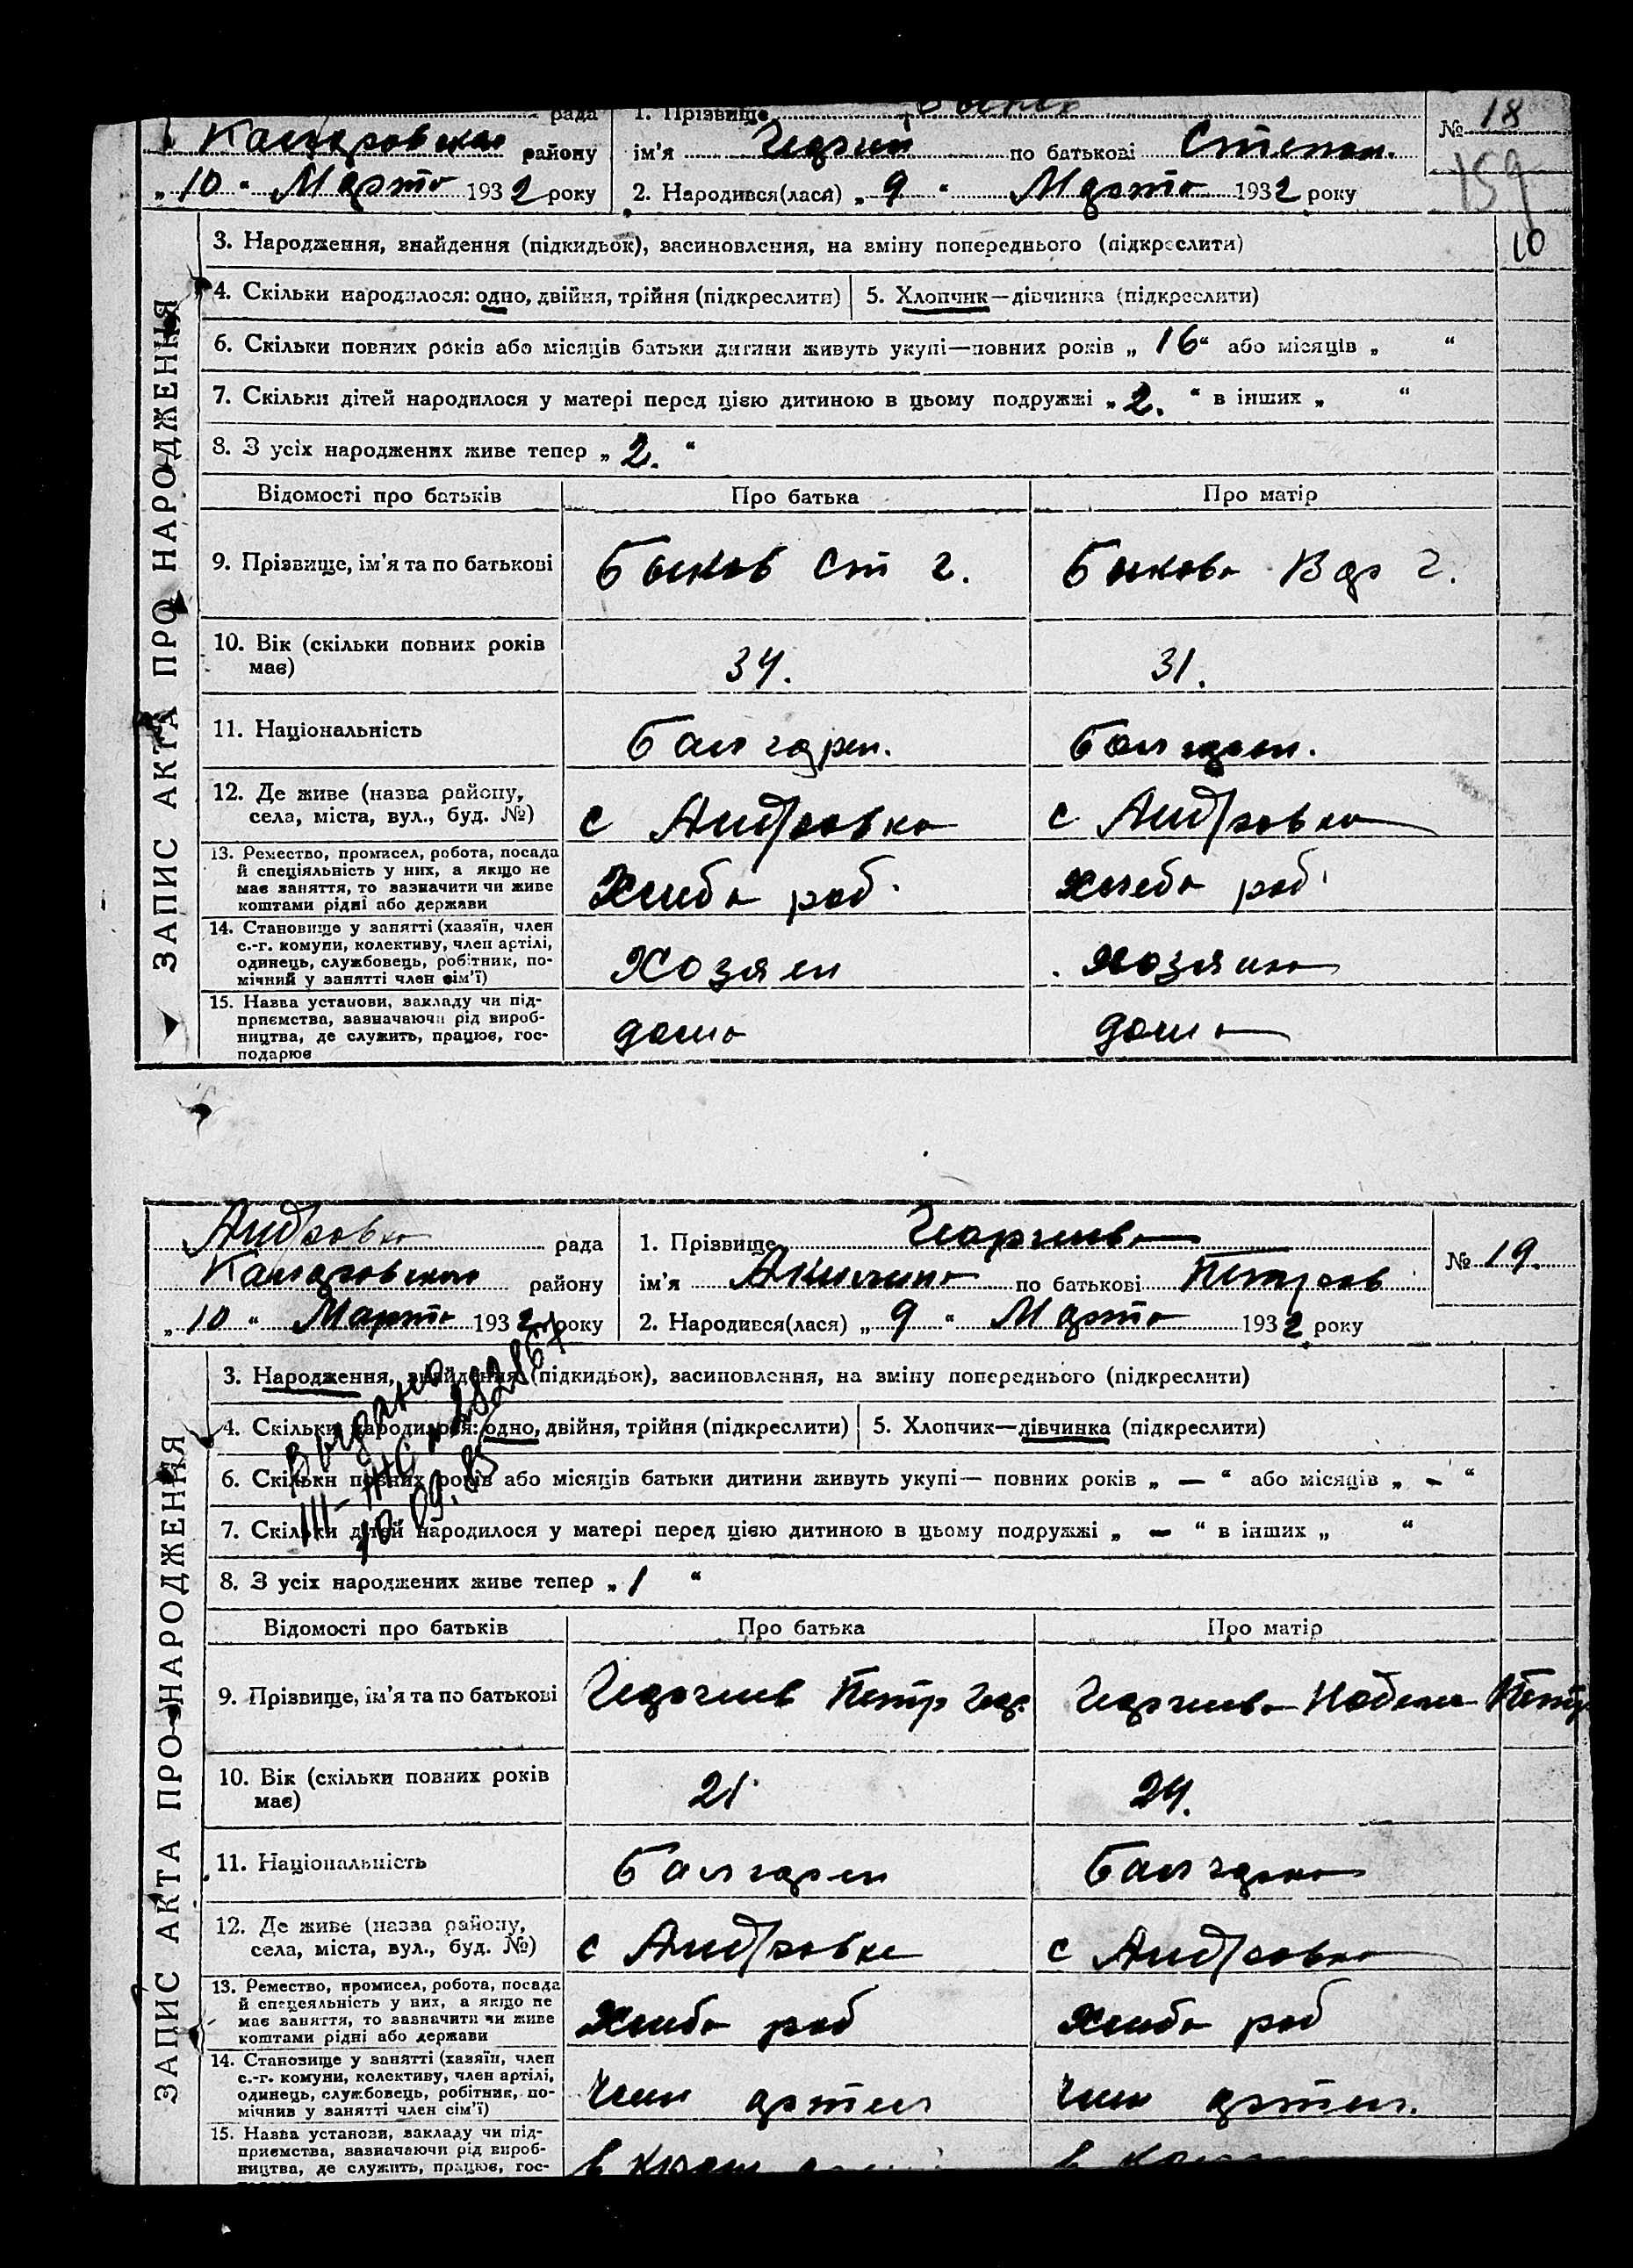 рада 1. Прізвище
района
району ім'я Георгий по батькові Степан. № 18
„ 10 “ Марта 1932 року 2. Народився(лася) „ 9 “ Марта 1932 року 159
ЗАПИС АКТА ПРО НАРОДЖЕННЯ
3. Народження, знайдення (підкидьок), засиновлення, на зміну попереднього (підкреслити) 10
4. Скільки народилося: одно, двійня, трійня (підкреслити) 5. Хлопчик—дівчинка (підкреслити)
6. Скільки повних років або місяців батьки дитини живуть укупі—повних років „ 16 “ або місяців „ “
7. Скільки дітей народилося у матері перед цією дитиною в цьому подружжі „ 2. “ в інших „ “
8. З усіх народжених живе тепер „ 2. “
Відомості про батьків Про батька Про матір
9. Прізвище, ім'я та по батькові Быков Ст г. Быкова Вар г.
10. Вік (скільки повних років
має) 34. 31.
11. Національність Балгарин. Балгарин.
12. Де живе (назва району,
села, міста, вул., буд. №) с Андровка с Андровка
13. Ремество, промисел, робота, посада
й спеціяльність у них, а якщо не
має заняття, то зазначити чи живе
коштами рідні або держави Хлеба роб. хлеба роб.
14. Становище у занятті (хазяїн, член
с.-г. комуни, колективу, член артілі,
одинець, службовець, робітник, по-
мічний у занятті член сім'ї) Хозяин хозяика
15. Назва установи, закладу чи під-
приємства, зазначаючи рід вироб-
ництва, де служить, працює, гос-
подарює дома дома
Андровка рада 1. Прізвище Георгиева № 19.
району ім'я Акилина по батькові Петров
„ 10 “ Марта 1932 року 2. Народився(лася) „ 9 “ Марта 1932 року
ЗАПИС АКТА ПРО НАРОДЖЕННЯ
3. Народження, знайдення (підкидьок), засиновлення, на зміну попереднього (підкреслити)
4. Скільки народилося: одно, двійня, трійня (підкреслити) 5. Хлопчик—дівчинка (підкреслити)
Выдано
III-ЖС
10.09.85
6. Скільки повних років або місяців батьки дитини живуть укупі— повних років „ — “ або місяців „ - “
7. Скільки дітей народилося у матері перед цією дитиною в цьому подружжі „ - “ в інших „ “
8. З усіх народжених живе тепер „ 1 “
Відомості про батьків Про батька Про матір
9. Прізвище, ім'я та по батькові Георгиев Петр Геор. Георгиева Петр
10. Вік (скільки повних років
має) 21 24.
11. Національність Балгарин Балгарка
12. Де живе (назва району,
села, міста, вул., буд. №) с Андровке с Андровка
13. Ремество, промисел, робота, посада
й спецеяльність у них, а якщо не
має заняття, то зазначити чи живе
коштами рідні або держави Хлеба роб Хлеба роб
14. Становище у занятті (хазяїн, член
с.-г. комуни, колективу, член артілі,
одинець, службовець, робітник, по-
мічнив у занятті член сім'ї) Член артели Член артели.
15. Назва установи, закладу чи під-
приємства, зазначаючи рід вироб-
ництва, де служить, працює, гос-